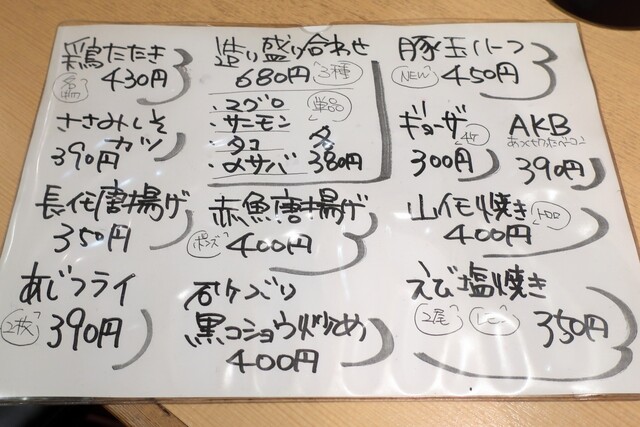 鶏たたき
430円
ささみしそ
カツ
390円
長イモ唐揚げ
350円
あじフライ
2枚 390円
造り盛り合わせ
680円 3種
・マグロ 単品
・サーモン
・タコ 各
・〆サバ 380円
赤魚唐揚げ
ポンズ 400円
砂ずり
黒コショウ炒め
400円
豚玉ハーフ
NEW 450円
ギョーザ
4ケ
300円
AKB
あつぎりベーコン
390円
山イモ焼き
トロロ
400円
えび塩焼き
2尾 350円